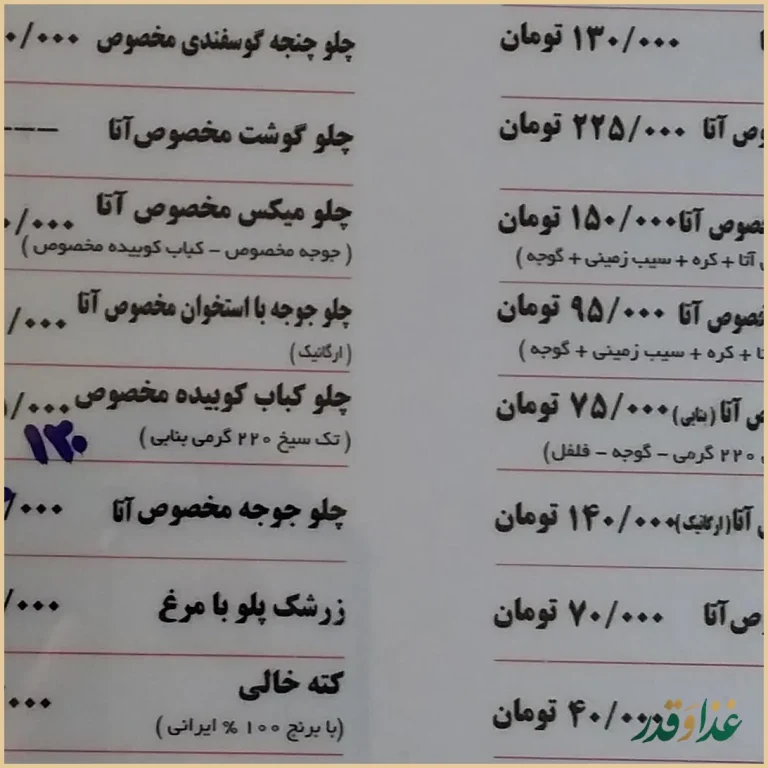 ۱۳۰/۰۰۰ تومان
آتا ۲۲۵/۰۰۰ تومان
آتا ۱۵۰/۰۰۰ تومان
آتا + کره + سیب زمینی + گوجه )
آتا ۹۵/۰۰۰ تومان
+ کره + سیب زمینی + گوجه )
آتا (بنابی) ۷۵/۰۰۰ تومان
۲۲۰ گرمی - گوجه - فلفل)
آتا (ارگانیک) ۱۴۰/۰۰۰ تومان
آتا ۷۰/۰۰۰ تومان
۴۰/۰۰۰ تومان
چلو چنجه گوسفندی مخصوص ۰/۰۰۰
چلو گوشت مخصوص آتا ---
چلو میکس مخصوص آتا ۰/۰۰۰
( جوجه مخصوص - کباب کوبیده مخصوص )
چلو جوجه با استخوان مخصوص آتا /۰۰۰
( ارگانیک )
چلو کباب کوبیده مخصوص /۰۰۰
( تک سیخ ۲۲۰ گرمی بنابی )
۱۲۰
چلو جوجه مخصوص آتا /۰۰۰
زرشک پلو با مرغ /۰۰۰
کته خالی ۰۰۰
(با برنج ۱۰۰ % ایرانی )
غذا و قدر